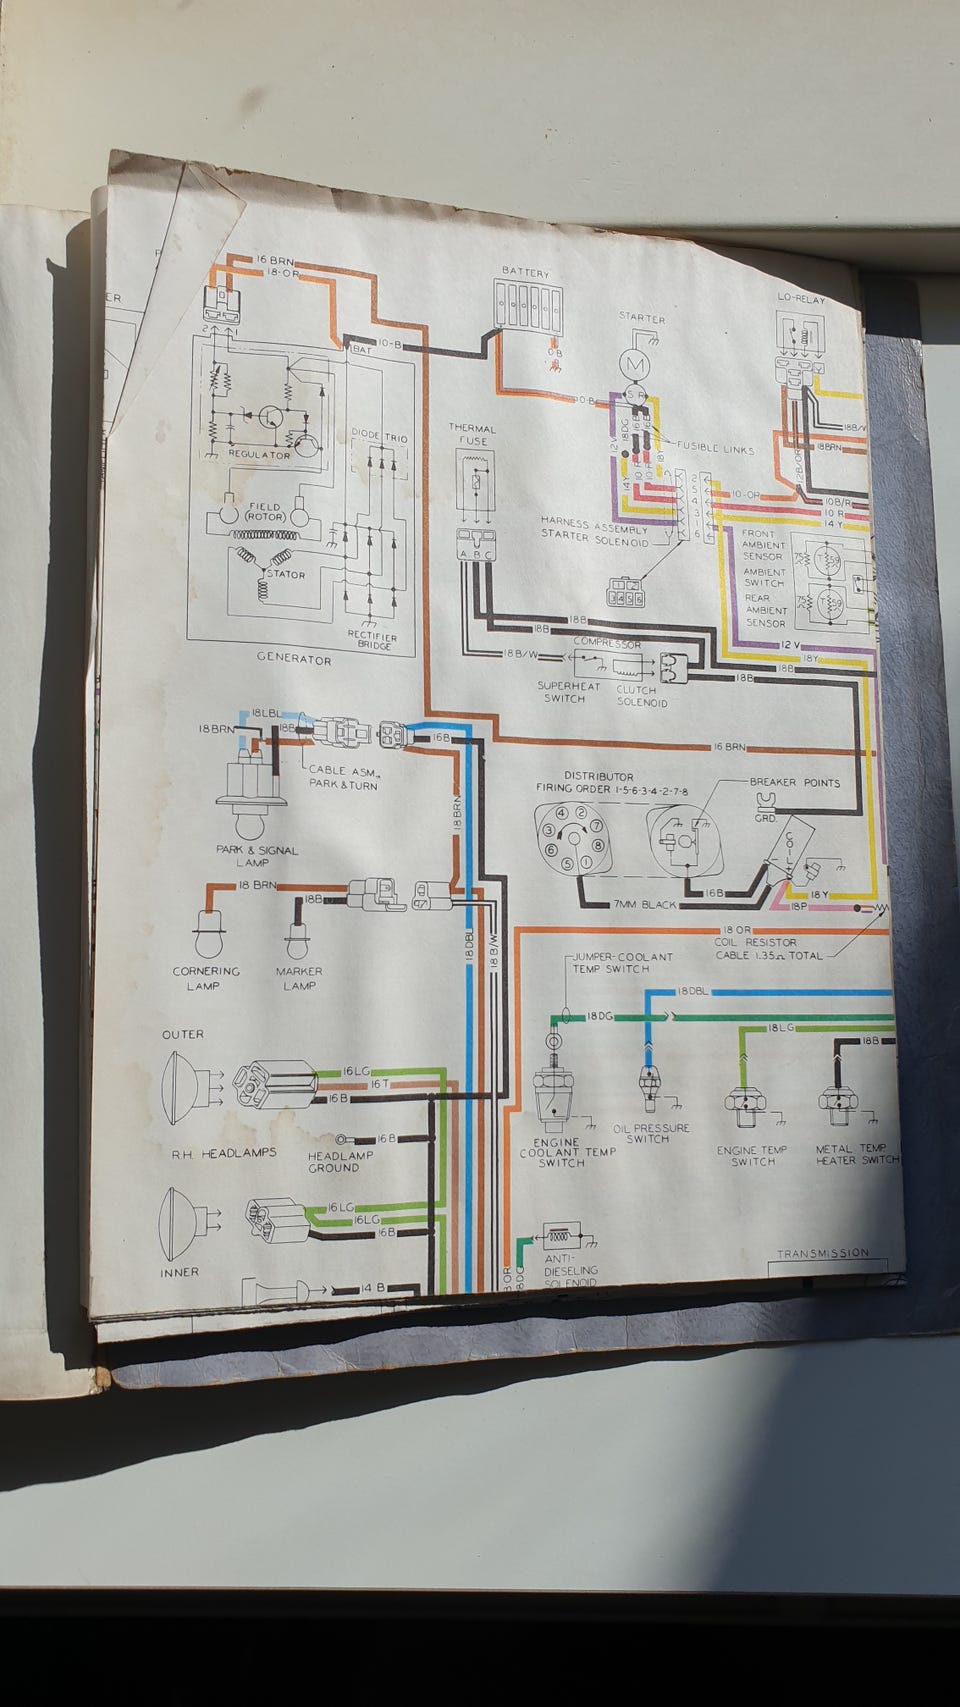 16 BRN
18-OR
ER
2
1
10-B
BAT
REGULATOR
DIODE TRIO
FIELD
(ROTOR)
STATOR
RECTIFIER
BRIDGE
GENERATOR
BATTERY
0-B
THERMAL
FUSE
A B C
STARTER
M
S R
12V
18DG
16B
16B
18Y
14Y
10 R
10 R
FUSIBLE LINKS
HARNESS ASSEMBLY
STARTER SOLENOID
2
5
4
3
1
6
1 2
3 4 5 6
LO-RELAY
12B/OR
18B/W
18BRN
10-OR
10B/R
10 R
14 Y
FRONT
AMBIENT
SENSOR
AMBIENT
SWITCH
REAR
AMBIENT
SENSOR
75
T 59
75
T 59
18B
18B
COMPRESSOR
18B/W
SUPERHEAT
SWITCH
CLUTCH
SOLENOID
12 V
18Y
18B
18B
16 BRN
18LBL
18BRN
18B
16B
CABLE ASM.,
PARK & TURN
PARK & SIGNAL
LAMP
18BRN
DISTRIBUTOR
FIRING ORDER 1-5-6-3-4-2-7-8
BREAKER POINTS
4 2
3 7
6 8
5 1
GRD.
COIL
16B
7MM BLACK
18Y
18P
18 OR
COIL RESISTOR
CABLE 1.35Ω TOTAL
18 BRN
18B
CORNERING
LAMP
MARKER
LAMP
18DBL
18 B/W
JUMPER-COOLANT
TEMP SWITCH
18DBL
18DG
18LG
18B
ENGINE
COOLANT TEMP
SWITCH
OIL PRESSURE
SWITCH
ENGINE TEMP
SWITCH
METAL TEMP
HEATER SWITCH
OUTER
16LG
16T
16B
16B
R.H. HEADLAMPS
HEADLAMP
GROUND
16LG
16LG
16B
INNER
14 B
18DG
ANTI-
DIESELING
SOLENOID
TRANSMISSION